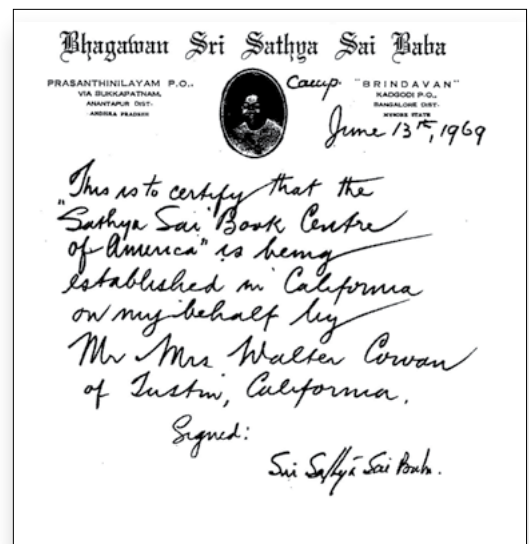 Bhagawan Sri Sathya Sai Baba
PRASANTHINILAYAM P.O.,
VIA BUKKAPATNAM,
ANANTAPUR DIST.
ANDHRA PRADESH
Camp
"BRINDAVAN"
KADGODI P.O.,
BANGALORE DIST.
MYSORE STATE
June 13th, 1969
This is to certify that the
"Sathya Sai Book Centre
of America" is being
established in California
on my behalf by
Mr Mrs Walter Cowan
of Tustin, California.
Signed:
Sri Sathya Sai Baba.